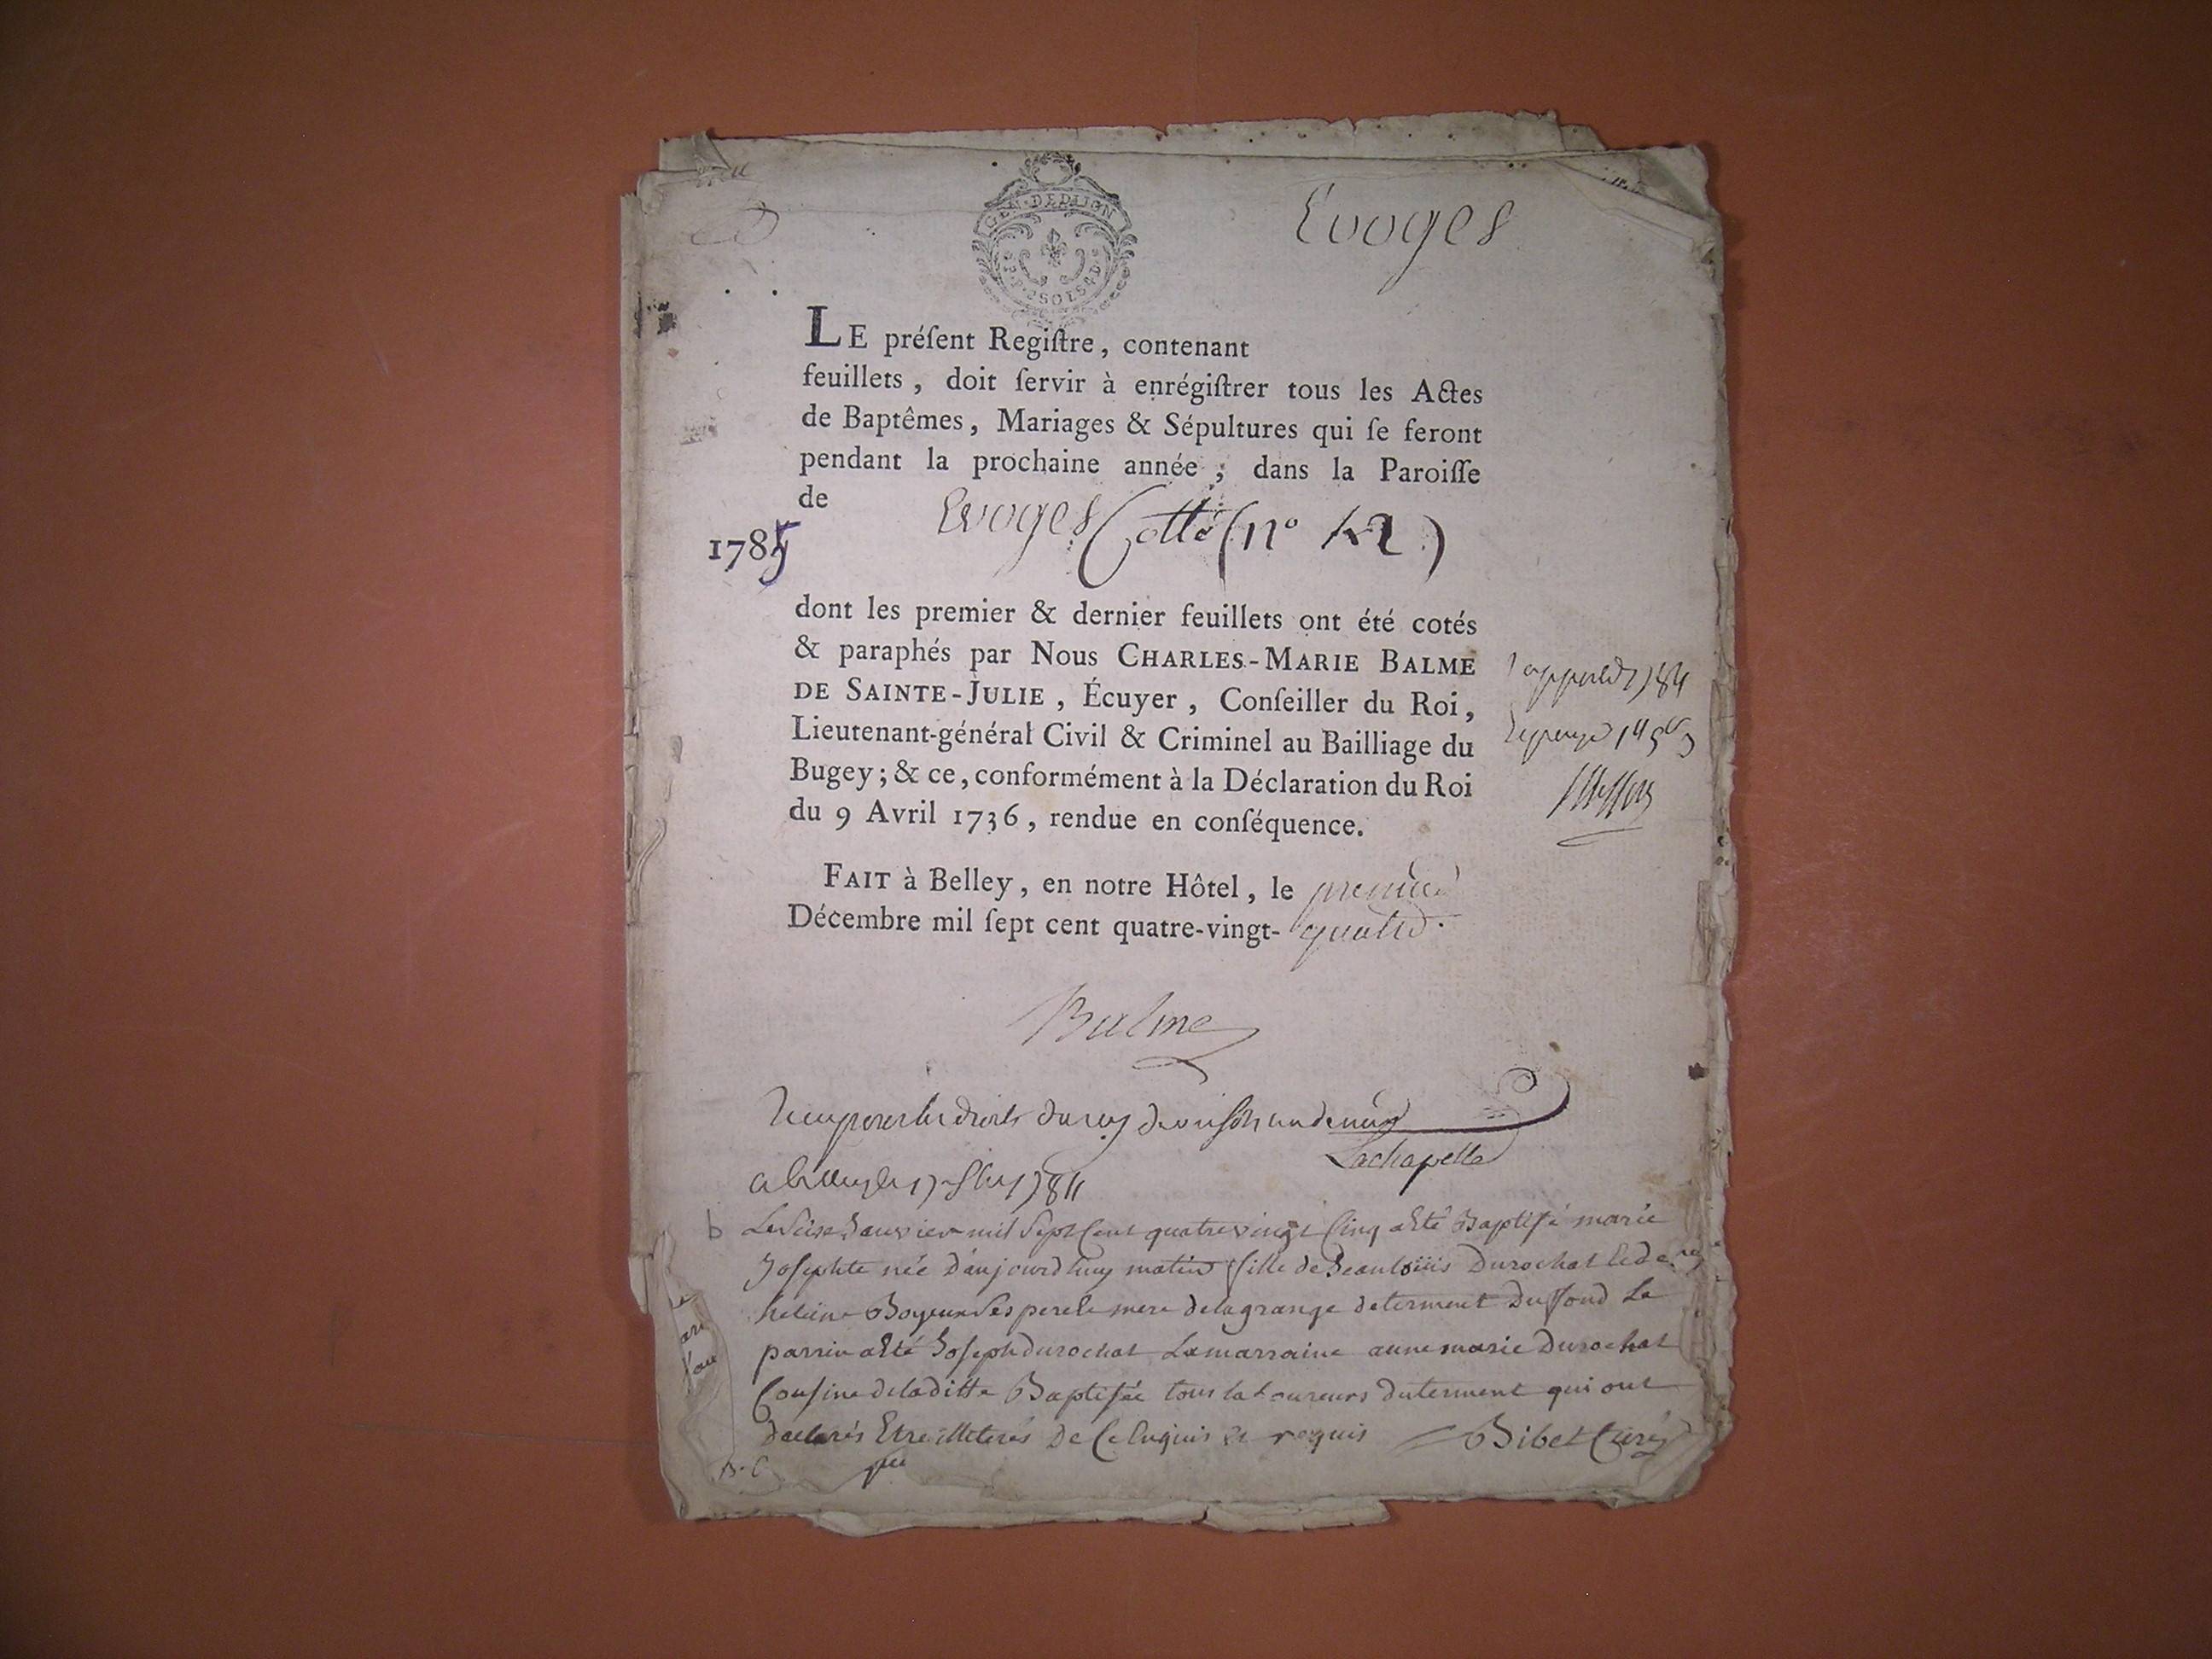 Evoges
GEN·DE DIJON
LE préſent Regiſtre, contenant
feuillets, doit ſervir à enrégiſtrer tous les Actes
de Baptêmes, Mariages & Sépultures qui ſe feront
pendant la prochaine année ; dans la Paroiſſe
de Evoges Cotté (n°
1785
dont les premier & dernier feuillets ont été cotés
& paraphés par Nous CHARLES-MARIE BALME
DE SAINTE-JULIE, Écuyer, Conſeiller du Roi,
Lieutenant-général Civil & Criminel au Bailliage du
Bugey; & ce, conformément à la Déclaration du Roi
du 9 Avril 1736, rendue en conſéquence.
FAIT à Belley, en notre Hôtel, le premier
Décembre mil ſept cent quatre-vingt- quatre.
Balme
Lachapelle
b Le seise Janvier mil sept Cent quatre vingt Cinq a Eté Baptisé marie
Josephte née d'aujourd huy matin fille de Jean louis Durochat et de
helène Boyeux ses pere et mere de la grange
parrin a Eté Joseph durochat La marraine anne marie Durochat
Cousine de la ditte Baptisée tous laboureurs qui ont
declarés Etre illiterés De Ce Enquis et requis Bibet Curé